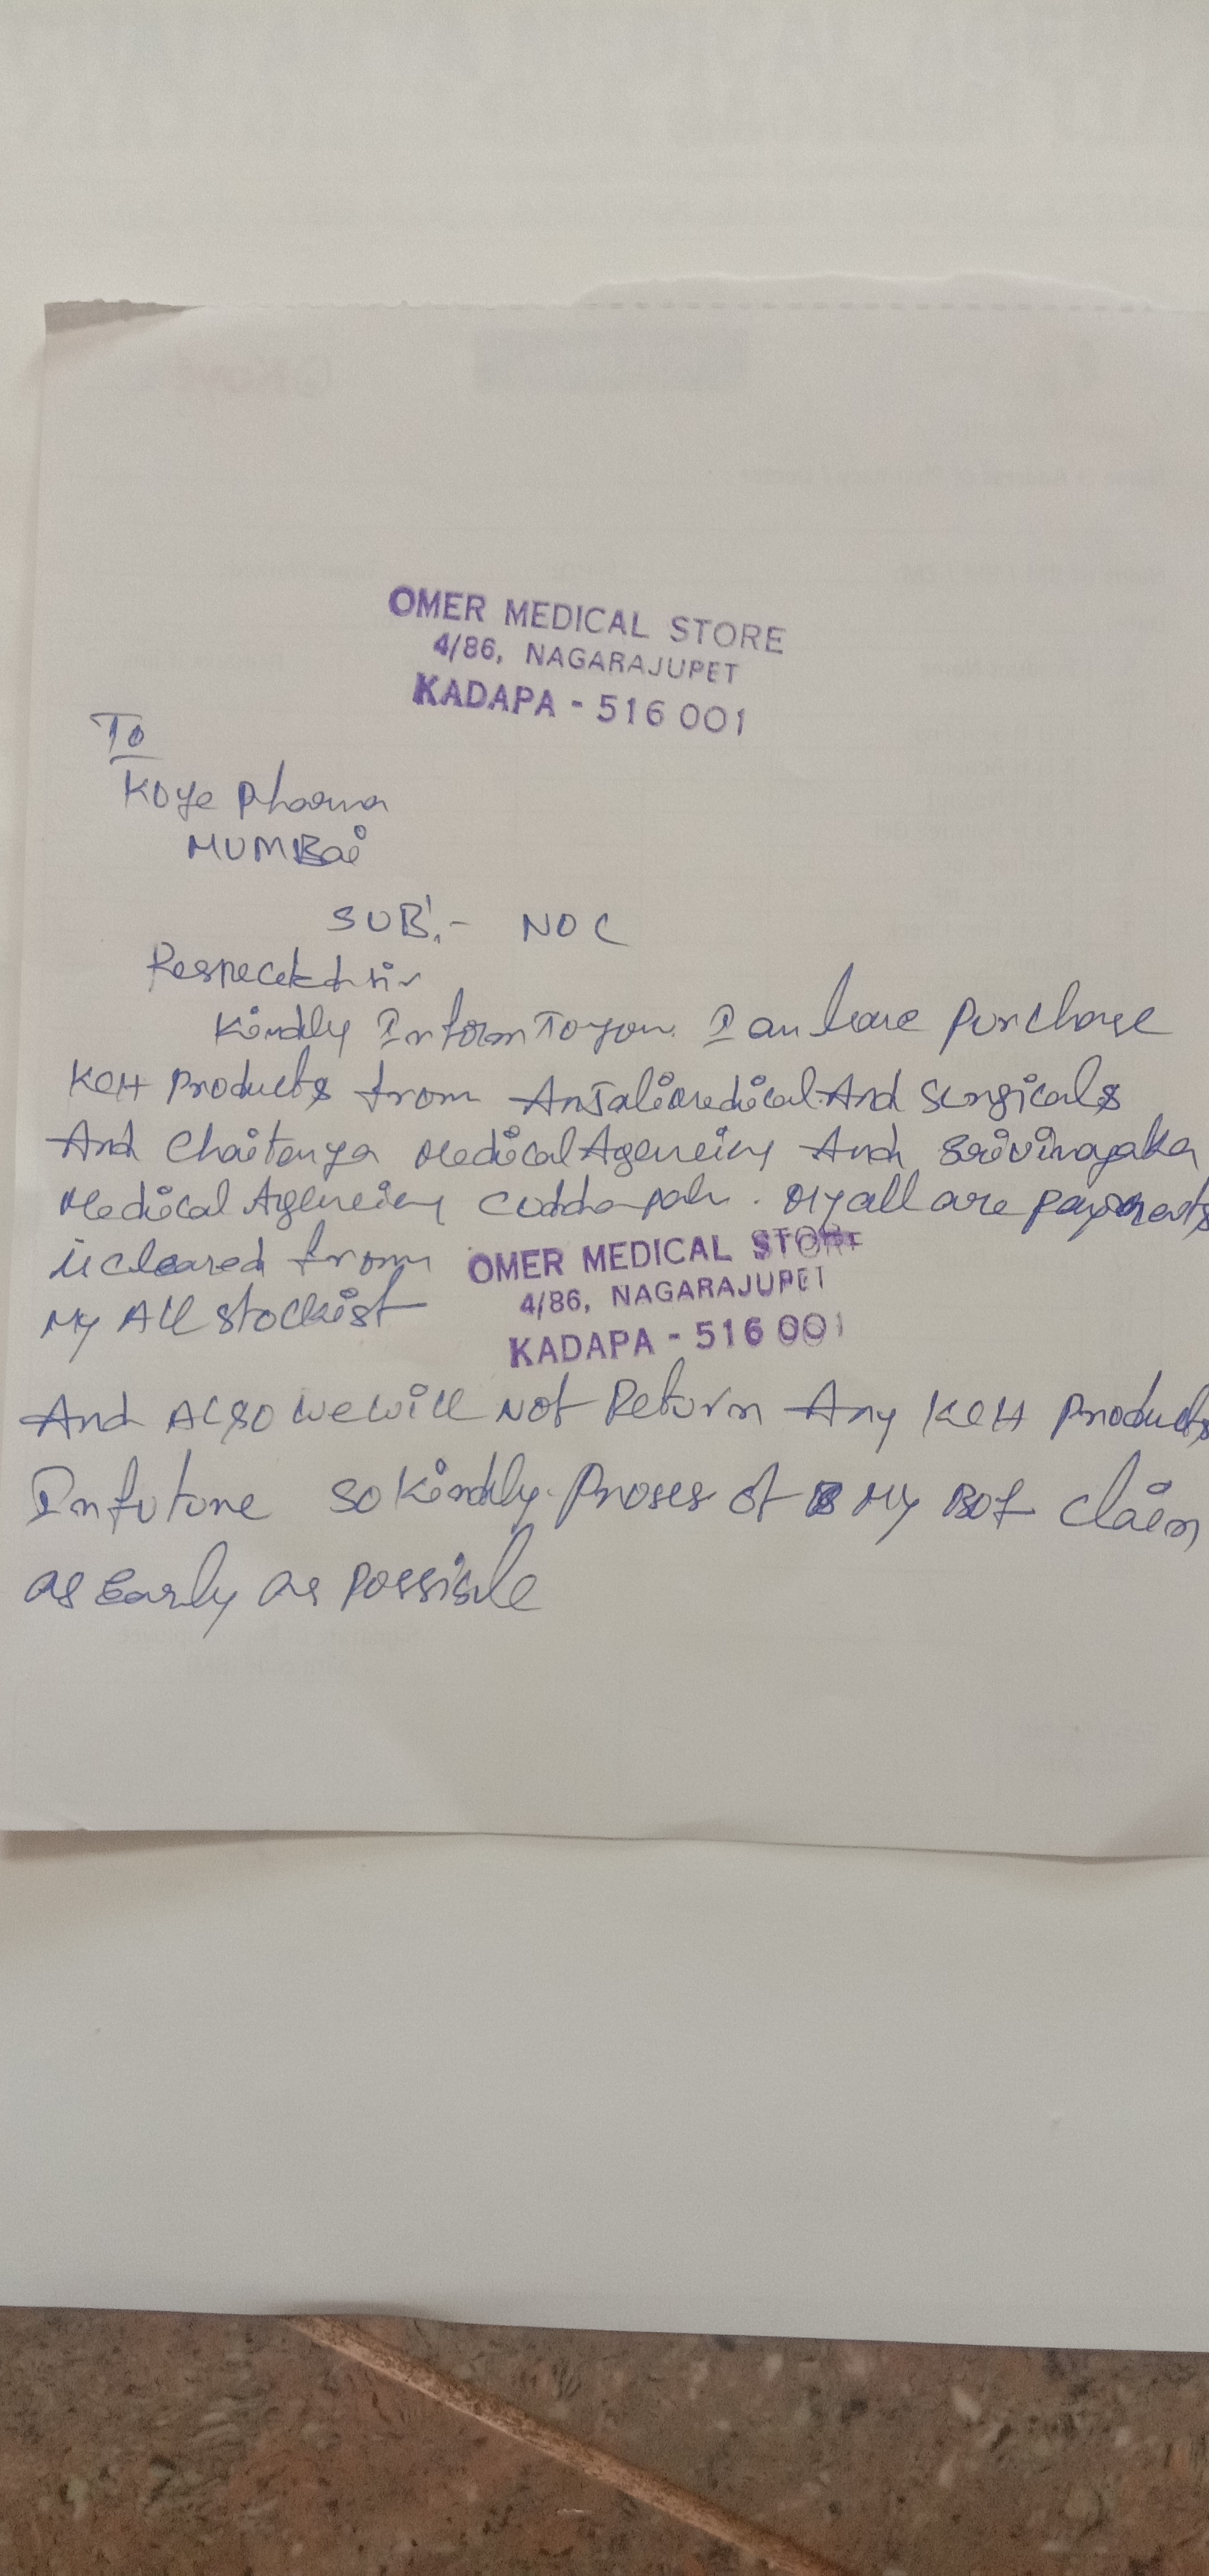 OMER MEDICAL STORE
4/86, NAGARAJUPET
KADAPA - 516 001
To
Koye pharma
MUMBai
SUB:- NOC
Respected sir
Kindly Inform To you. I am have purchase
KCH products from Anjali medical And surgicals
And Chaitanya Medical Agencies And Srivinayaka
Medical Agencies cuddapah. My all are payments
is cleared from
My All stockist
OMER MEDICAL STORE
4/86, NAGARAJUPET
KADAPA - 516 001
And Also we will not Return Any KCH products
In future so kindly proses of My claim
as Early as possible